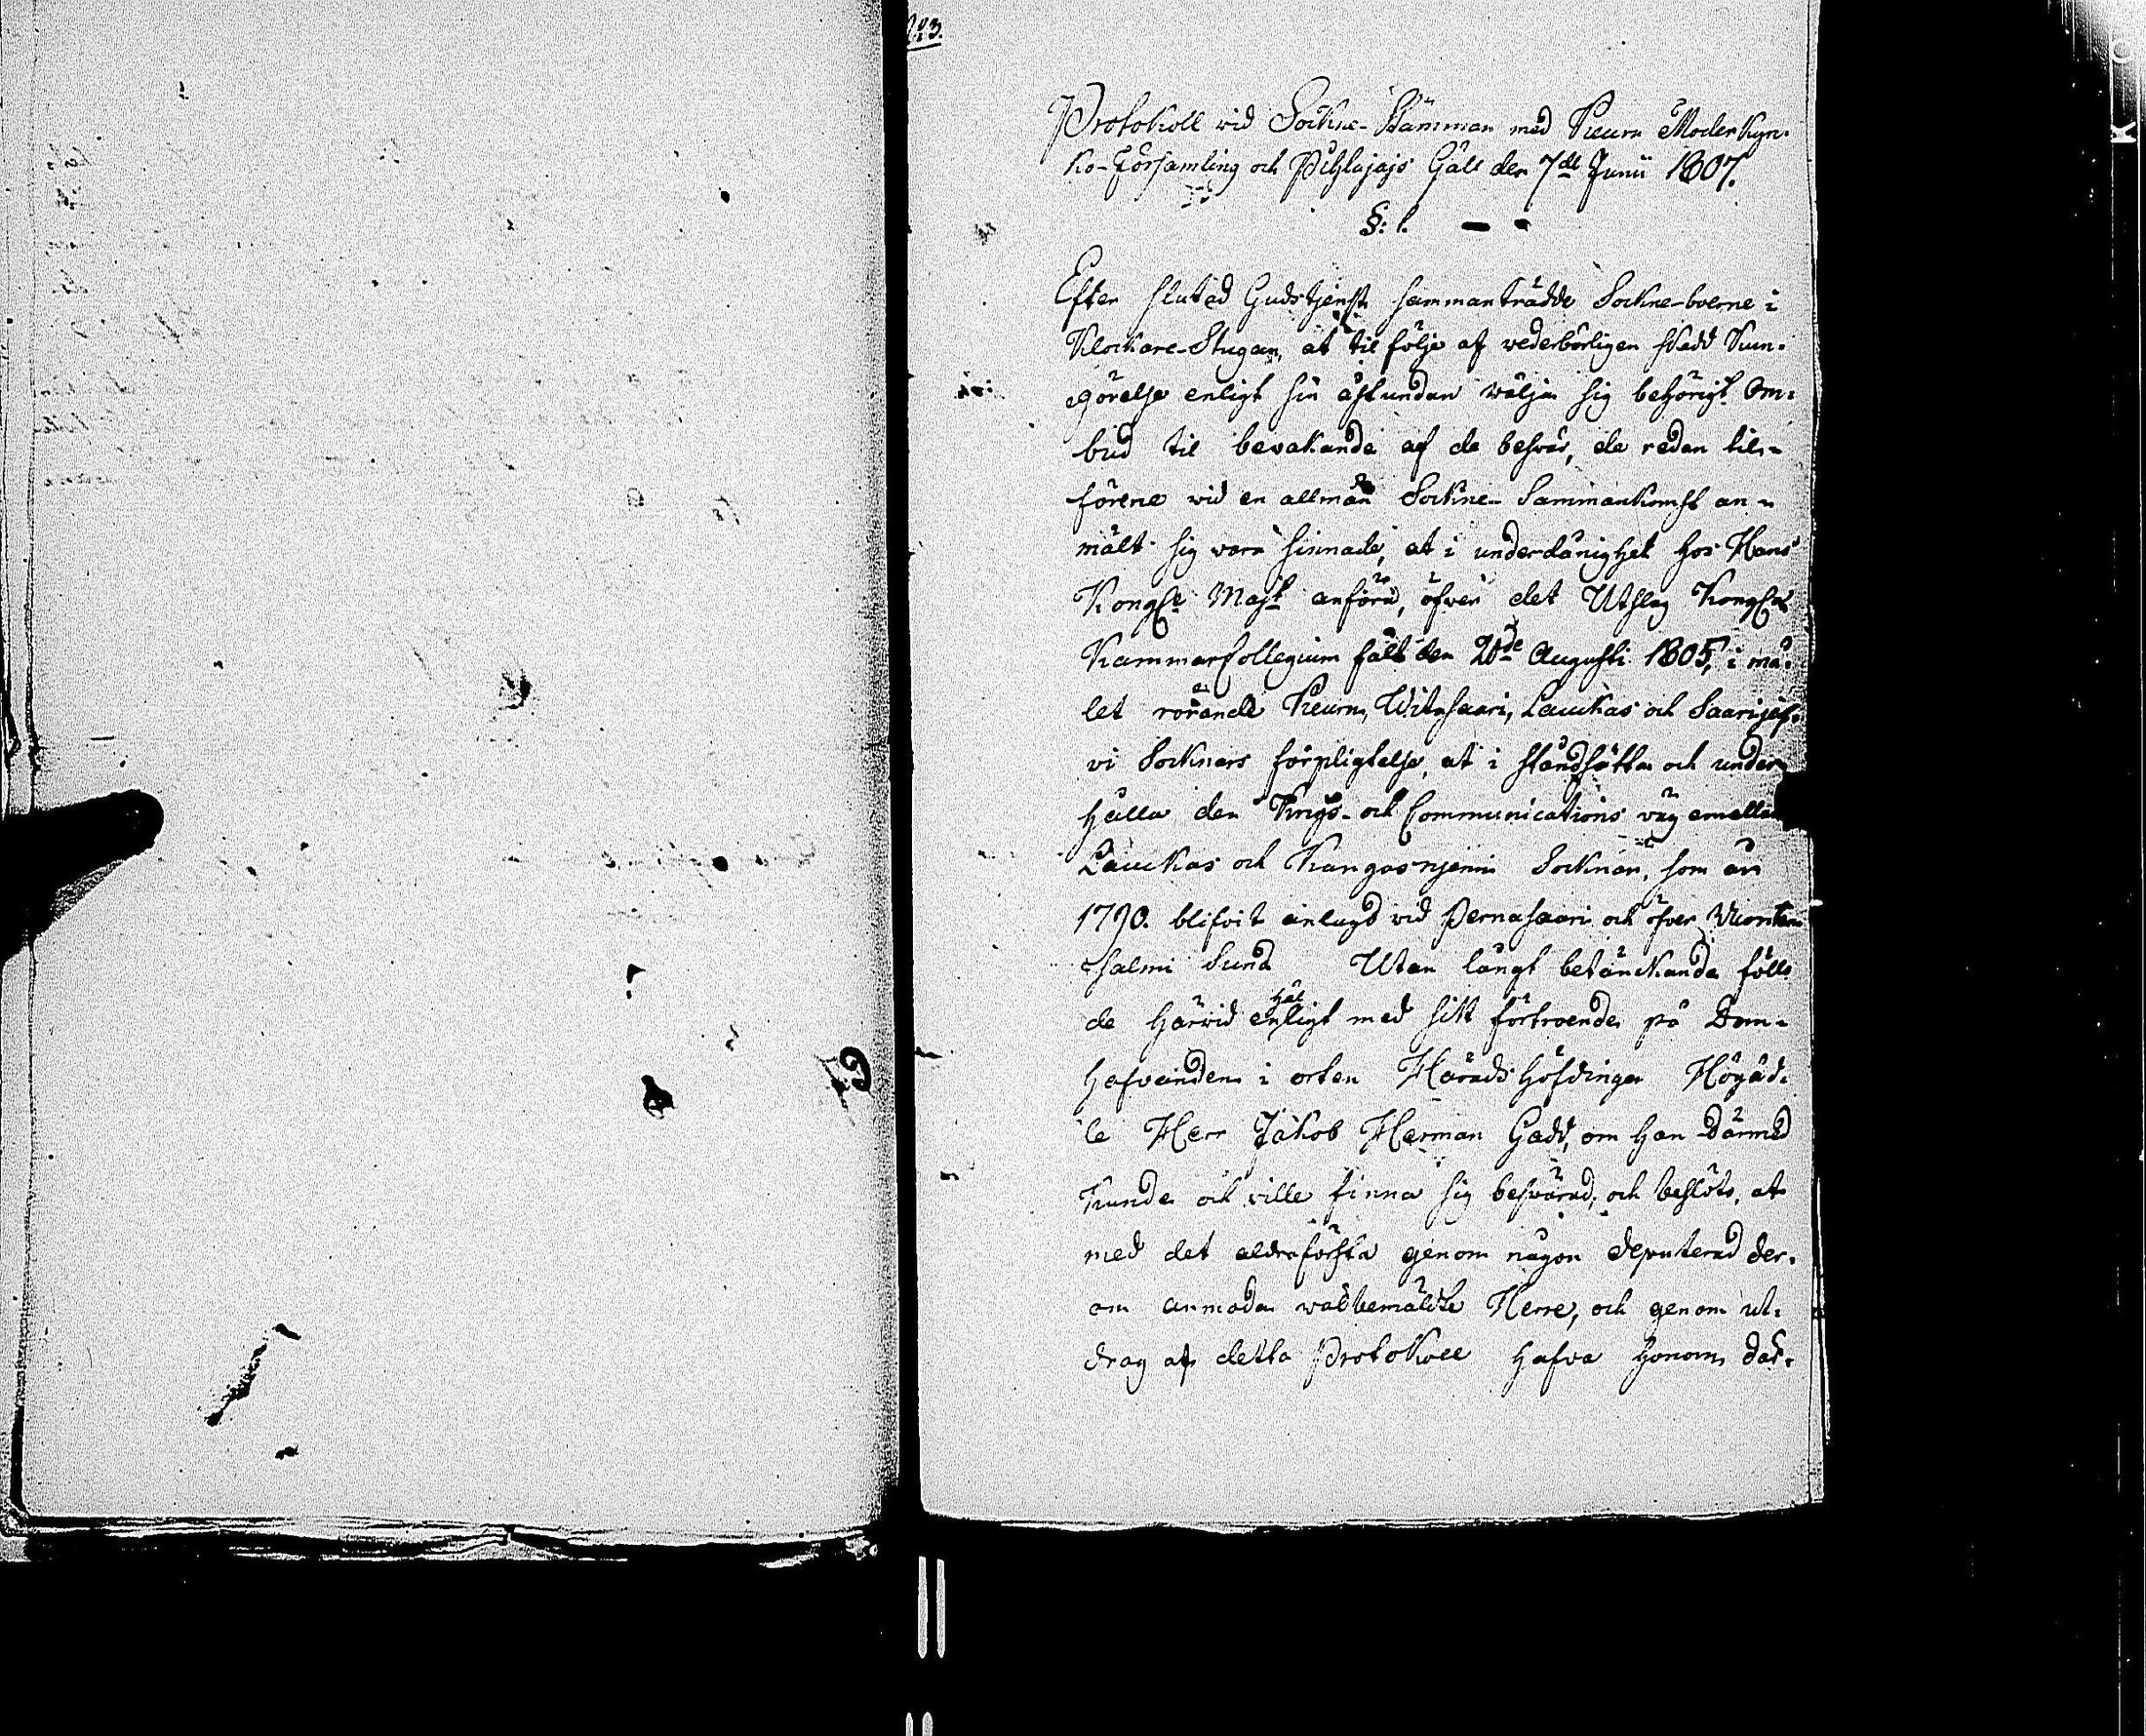 N:3.
Protokoll wid Sockne-Stämman med Keuru Moderkyr-
ko-Församling och Pihlajajs Gäll den 7de Junii 1807.
§: 1.
Efter slutad Gudstjenst sammanträdde Sockne-boerne i
Klockare-Stugan, at til följe af wederbörligen skedd Kun-
görelse enligt sin åstundan wälja sig behörigt Om-
bud til bevakande af de besvär, de redan til-
förene wid en allmän Sockne-Sammankomst an-
mält sig vara sinnade, at i underdånighet hos Hans
Kongl. Majt anföra, öfver det Utslag Kongl.
Kammarcollegium fält den 20de Augusti 1805, i må-
let rörande Keuru, Witasaari, Laukas och Saarijär-
vi Socknars förpligtelse, at i ståndsätta och under-
hålla den Krigs- och Communications väg emellan
Laukas och Kangasnjemi Socknar, som år
1790. blifvit anlagd vid Pernasaari och öfver Vuonten
salmi Sund Utan långt betänckande föll
de härvid enhälligt med sitt förtroende på Dom-
hafvanden i orten Häradshöfdingen Högäd-
le Herr Jakob Herman Gadd, om han därmed
kunde och ville finna sig besvärad, och beslöts, at
med det aldraförsta genom någon deputerad der-
om anmoda wälbemälte Herre, och genom ut-
drag af detta Protokoll hafva honom där-